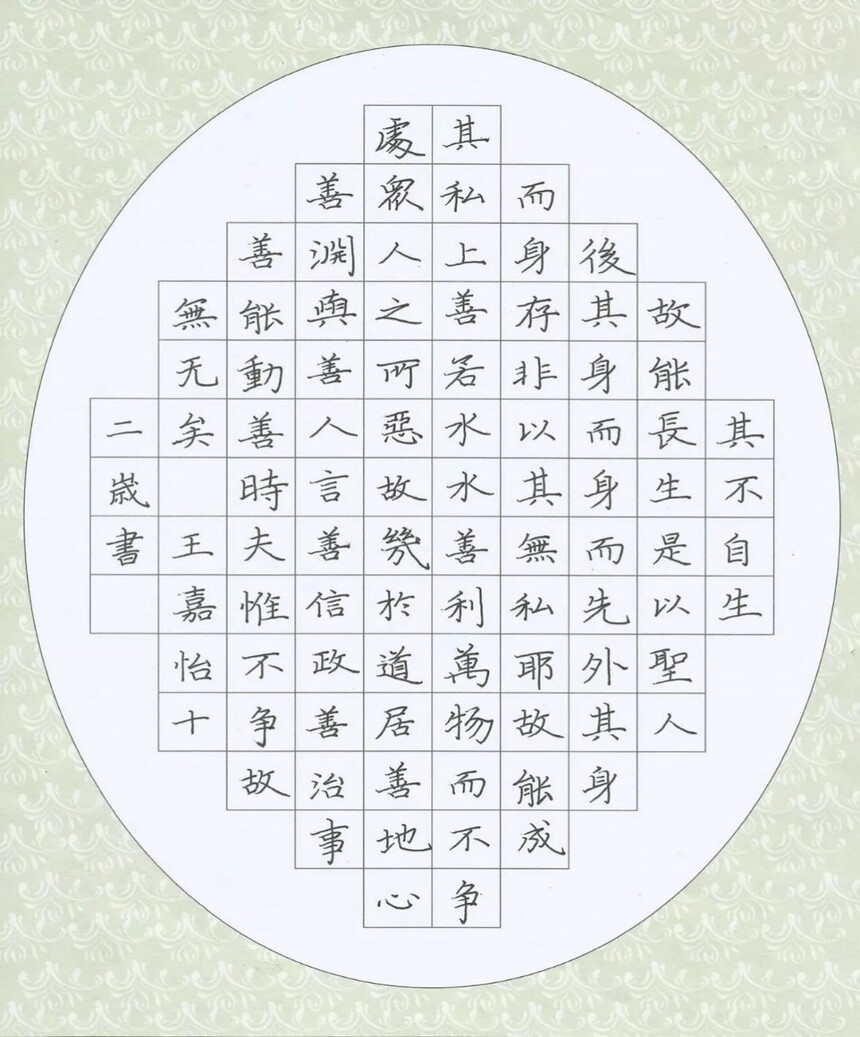 其不自生
故能長生是以聖人
後其身而身而先外其身
而身存非以其無私耶故能成
其私上善若水水善利萬物而不争
處眾人之所惡故幾於道居善地心
善淵與善人言善信政善治事
善能動善時夫惟不争故
無无矣 王嘉怡十
二歲書